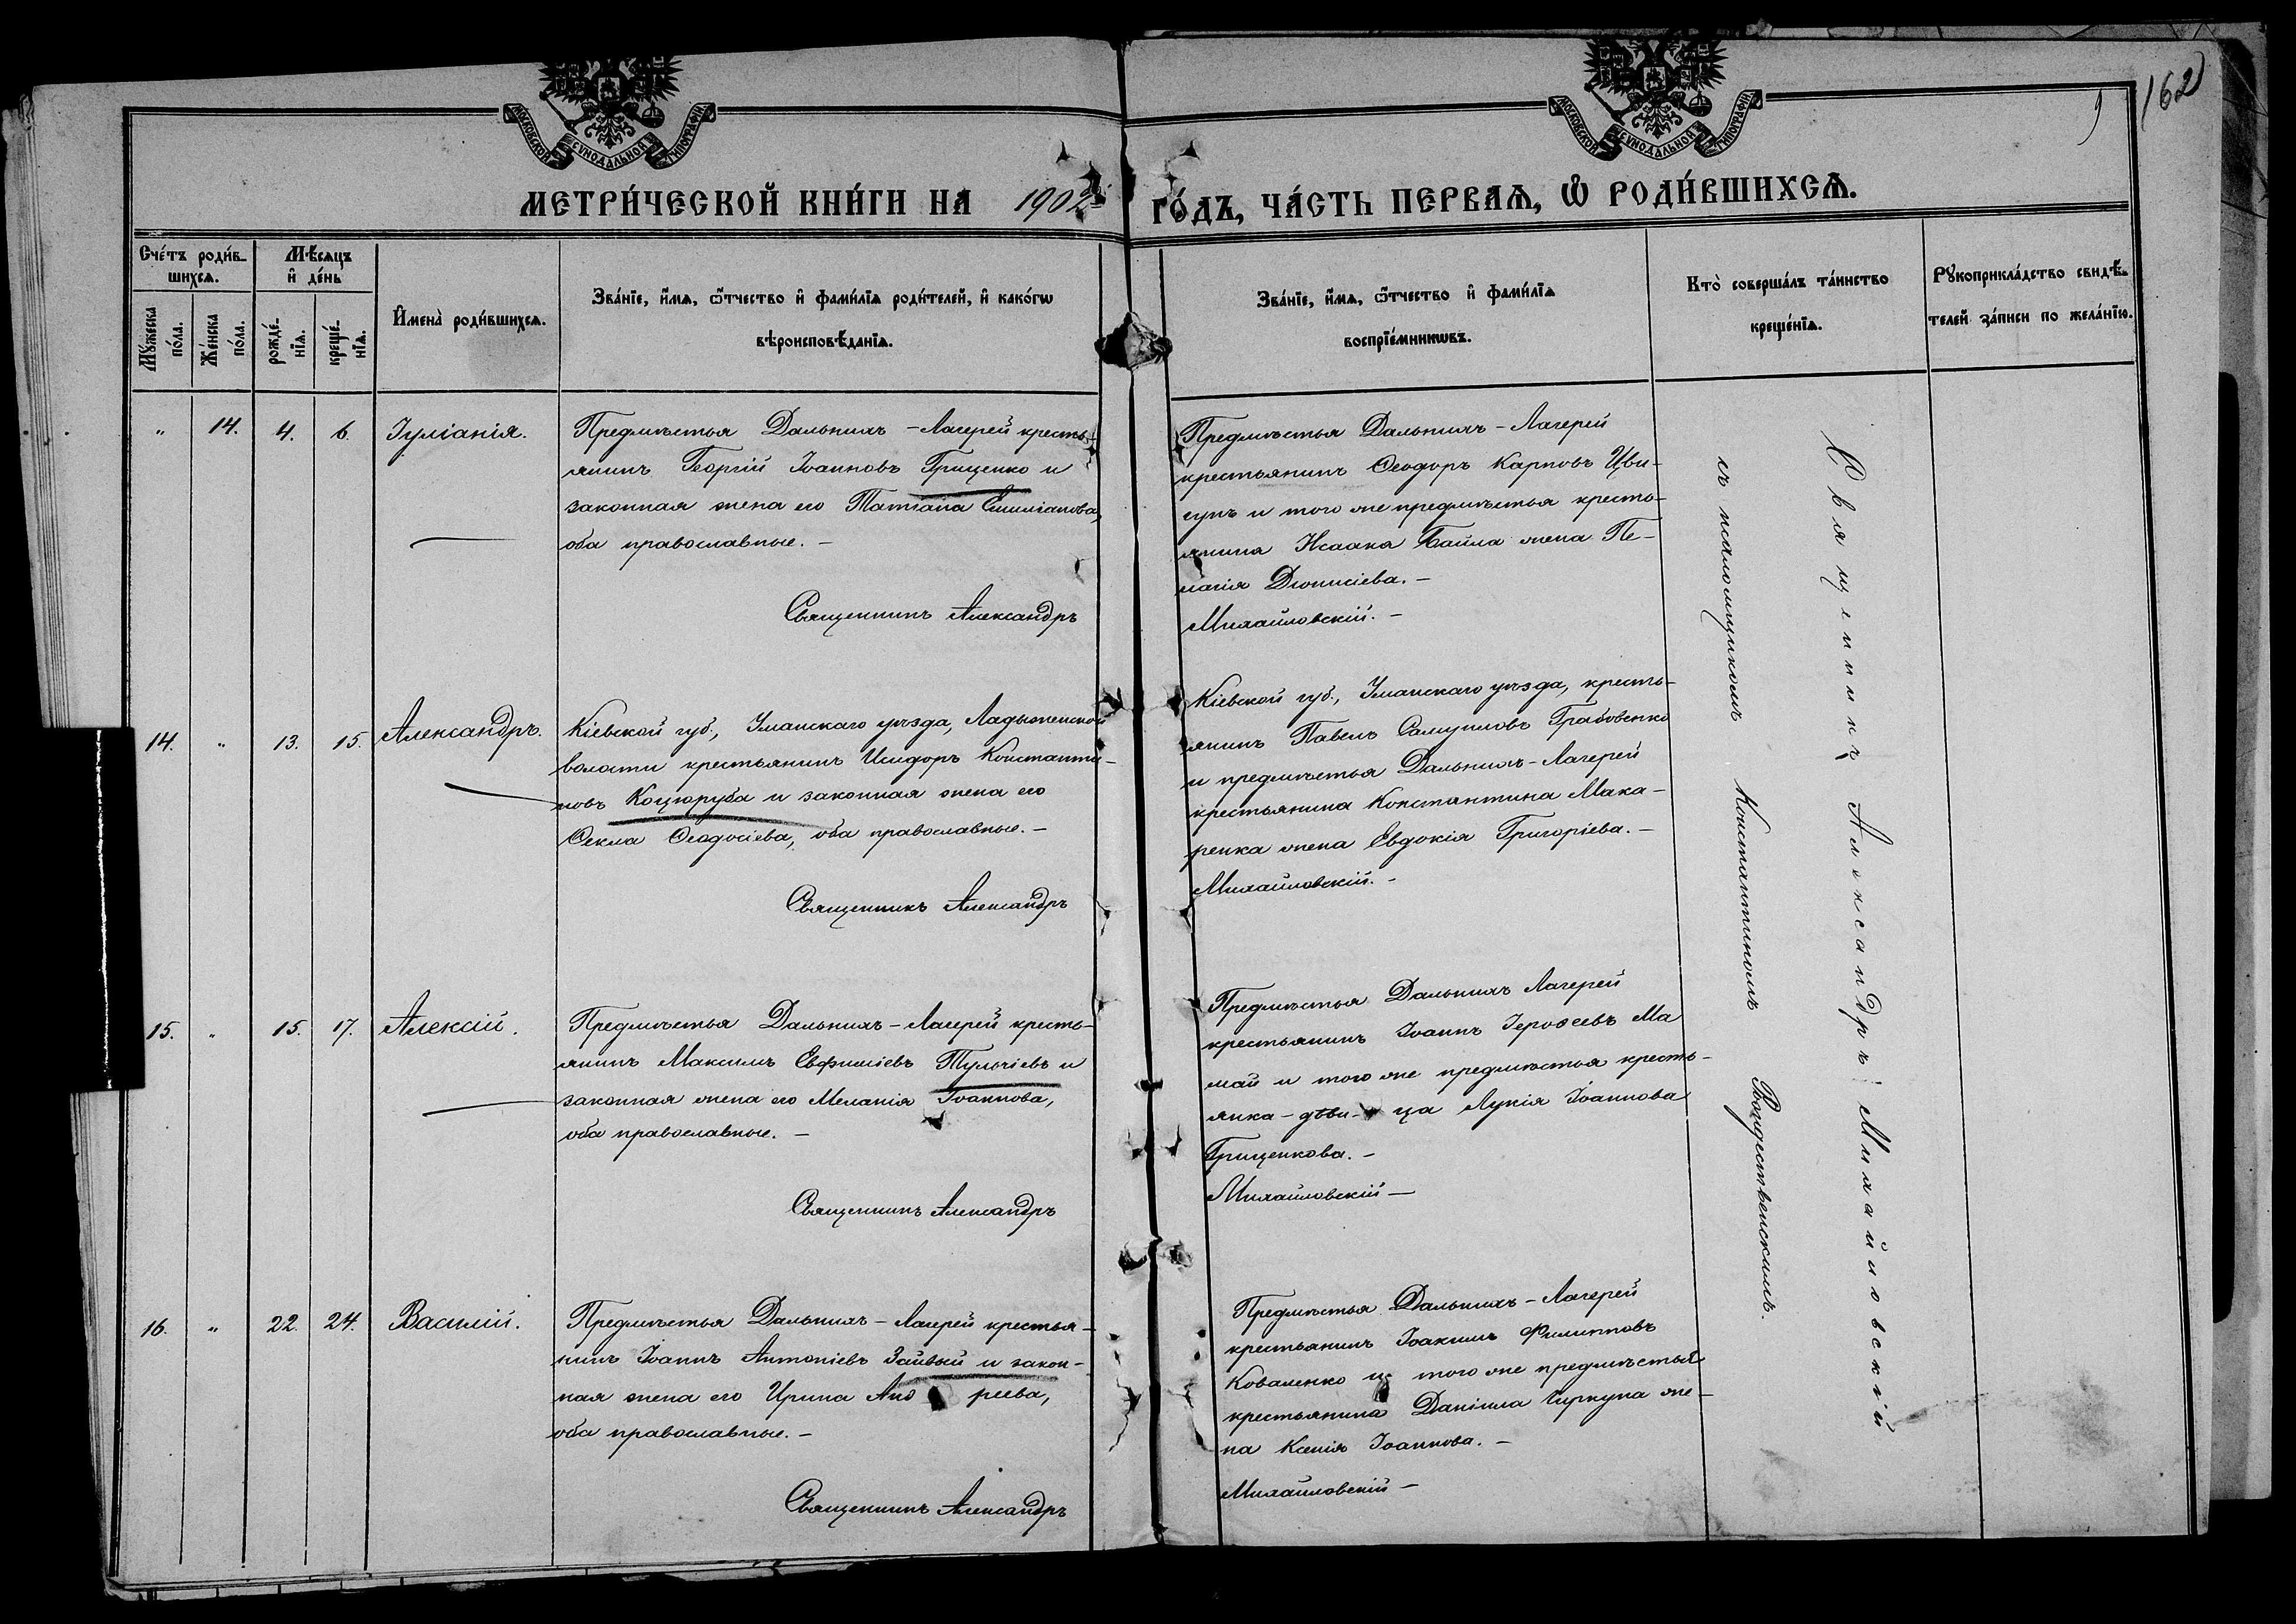 162
МОСКОВСКОЙ СѴНОДАЛЬНОЙ ТИПОГРАФІИ
МОСКОВСКОЙ СѴНОДАЛЬНОЙ ТИПОГРАФІИ
МЕТРИ́ЧЕСКОЙ КНИ́ГИ НА 1902 ГО́ДЪ, ЧА́СТЬ ПЕРВАѦ, Ѡ҆ РОДИ́ВШИХСѦ.
Сче́тъ роди́в-
шихсѧ.
Мѣ́сѧцъ
и҆ де́нь
Мꙋ́жеска
по́ла.
Же́нска
по́ла.
рожде́-
нїѧ.
креще́-
нїѧ.
И҆мена̀ роди́вшихсѧ.
Зва́нїе, и҆́мѧ, ѻ҆́тчество и҆ фами́лїѧ роди́телей, и҆ како́гѡ
вѣроисповѣ́данїѧ.
Зва́нїе, и҆́мѧ, ѻ҆́тчество и҆ фами́лїѧ
воспрїе́мникѡвъ.
Кто̀ соверша́лъ та́инство
креще́нїѧ.
Рꙋкоприкла́дство свидѣ́-
телей за́писи по жела́нїю.
" 14. 4. 6. Іуліанія.
Предмѣстья Дальнихъ-Лагерей кресть-
янинъ Георгій Іоанновъ Грищенко и
законная жена его Татіана Емиліанова,
оба православные. –
Священникъ Александръ
Предмѣстья Дальнихъ-Лагерей
крестьянинъ Ѳеодоръ Карповъ Цви-
гунъ и того же предмѣстья кресть-
янина Исаака Байла жена Пе-
лагія Діонисіева. –
Михайловскій. –
14. " 13. 15. Александръ.
Кіевской губ., Уманскаго уѣзда, Ладыженской
волости крестьянинъ Исидоръ Константи-
новъ Коцюруба и законная жена его
Ѳекла Ѳеодосіева, оба православные. –
Священникъ Александръ
Кіевской губ., Уманскаго уѣзда, кресть-
янинъ Павелъ Самуиловъ Грабовенко
и предмѣстья Дальнихъ-Лагерей
крестьянина Константина Мака-
ренка жена Евдокія Григоріева. –
Михайловскій. –
15. " 15. 17. Алексій.
Предмѣстья Дальнихъ-Лагерей кресть-
янинъ Максимъ Евфиміевъ Тульчіевъ и
законная жена его Меланія Іоаннова,
оба православные. –
Священникъ Александръ
Предмѣстья Дальнихъ Лагерей
крестьянинъ Іоаннъ Іероѳеевъ Ма
май и того же предмѣстья кресть-
янка-дѣви-ца Лукія Іоаннова
Грищенкова. –
Михайловскій –
16. " 22. 24. Василій.
Предмѣстья Дальнихъ-Лагерей крестья-
нинъ Іоаннъ Антоніевъ Зайвый и закон-
ная жена его Ирина Анд реева,
оба православные. –
Священникъ Александръ
Предмѣстья Дальнихъ-Лагерей
крестьянинъ Іоакимъ Филипповъ
Коваленко и того же предмѣстья
крестьянина Даніила Чиркуна же-
на Ксенія Іоаннова. –
Михайловскій –
Священникъ Александръ Михайловскій
съ псаломщикомъ Константиномъ Рождественскимъ.